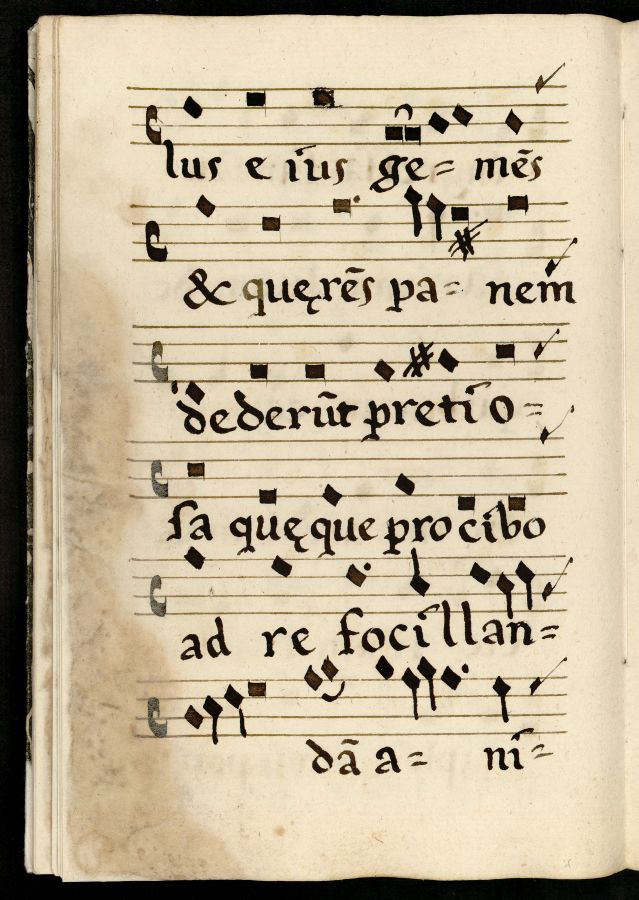 lus eius ge= mēs
& quęrēs pa= nem
dederūt pretio=
sa quęque pro cibo
ad re focillan=
dā a= ni=